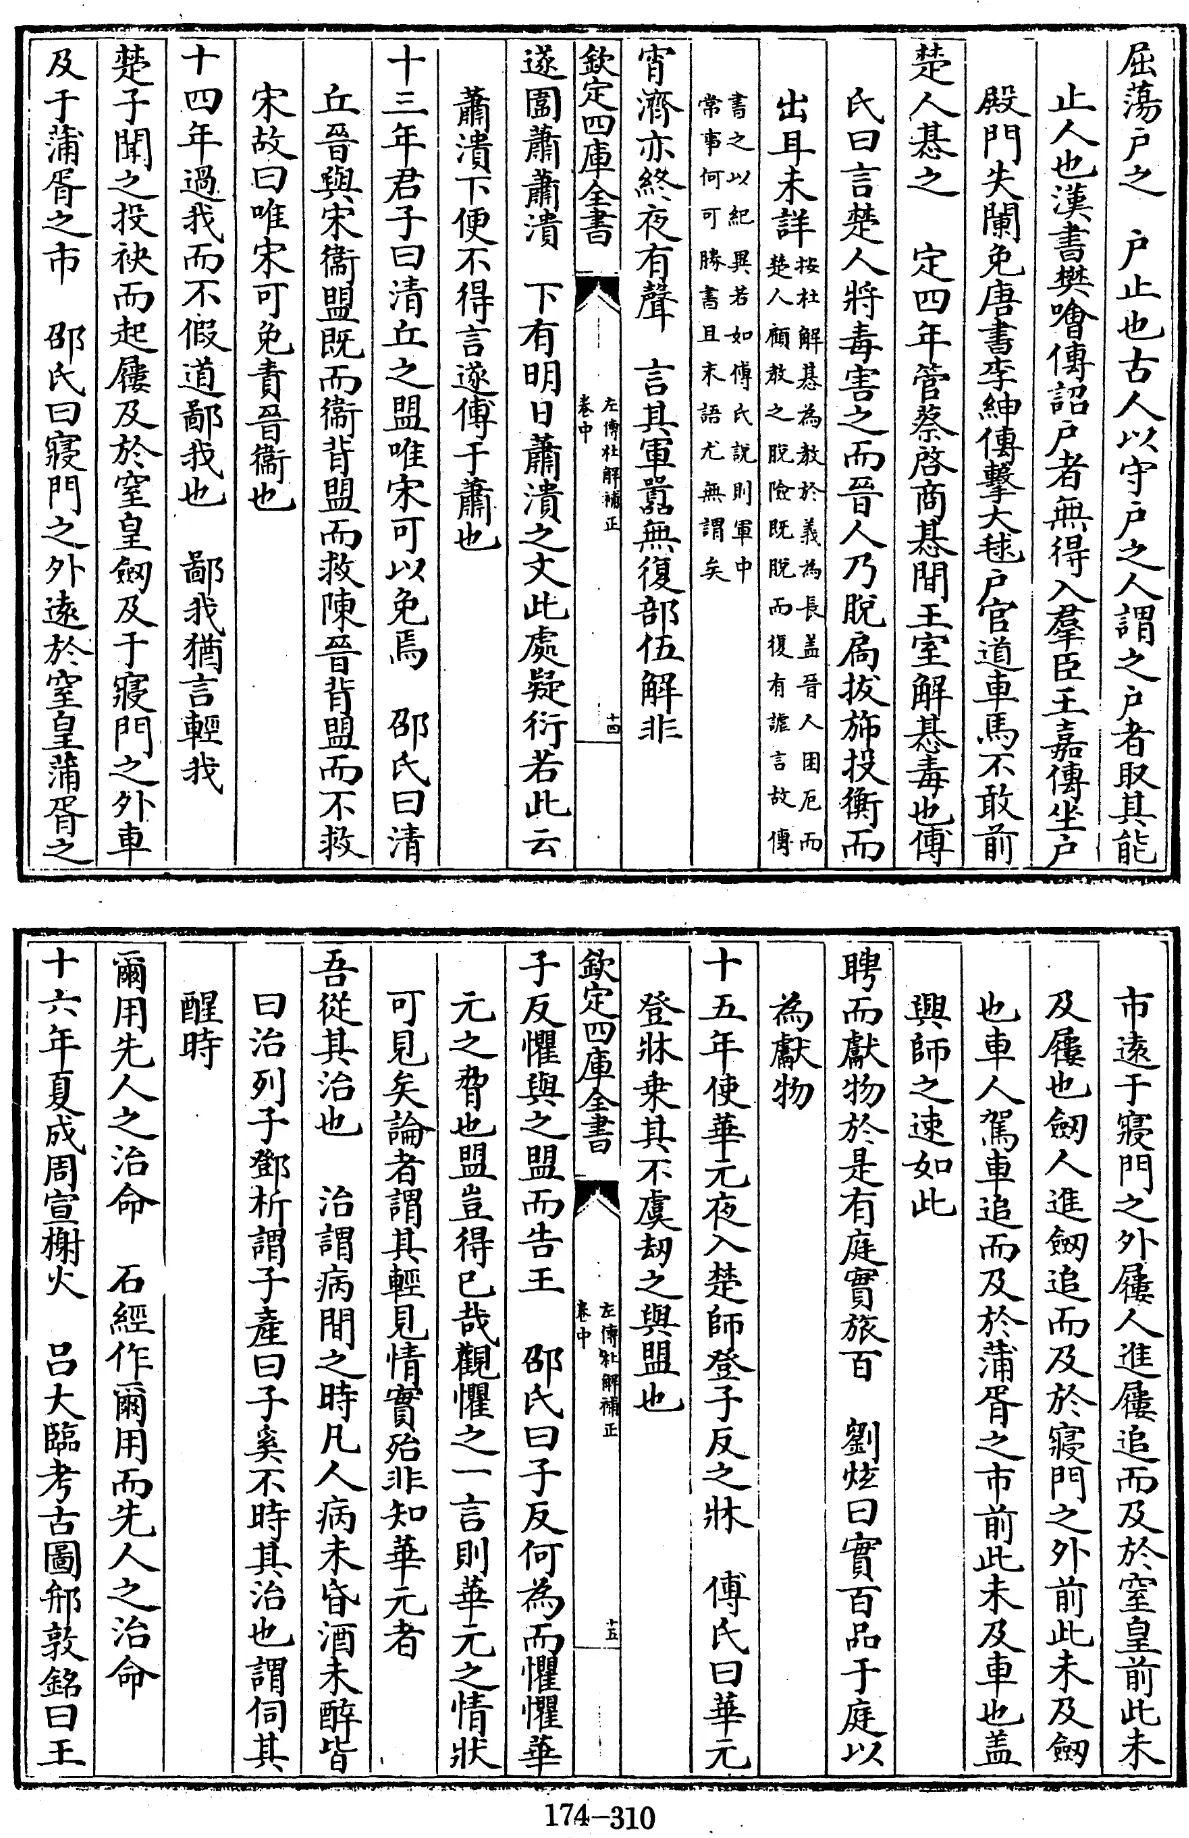 屈蕩户之　户止也古人以守户之人謂之户者取其能
止人也漢書樊噲傳詔户者無得入羣臣王嘉傳坐户
殿門失闌免唐書李紳傳擊大毬户官道車馬不敢前
楚人惎之　定四年管蔡啓商惎間王室解惎毒也傅
氏曰言楚人將毒害之而晉人乃脫扃拔斾投衡而
出耳未詳按杜解惎為教於義為長盖晉人困厄而
楚人顧教之脫險既脫而復有謔言故傳
書之以紀異若如傅氏說則軍中
常事何可勝書且末語尤無謂矣
宵濟亦終夜有聲　言其軍嚣無復部伍解非
欽定四庫全書
左傳杜解補正
卷中
十四
遂圍蕭蕭潰　下有明日蕭潰之文此處疑衍若此云
蕭潰下便不得言遂傅于蕭也
十三年君子曰清丘之盟唯宋可以免焉　邵氏曰清
丘晉與宋衞盟既而衞背盟而救陳晉背盟而不救
宋故曰唯宋可免責晉衞也
十四年過我而不假道鄙我也　鄙我猶言輕我
楚子聞之投袂而起屨及於窒皇劒及于寢門之外車
及于蒲胥之市　邵氏曰寢門之外遠於窒皇蒲胥之
市遠于寢門之外屨人進屨追而及於窒皇前此未
及屨也劒人進劒追而及於寢門之外前此未及劒
也車人駕車追而及於蒲胥之市前此未及車也盖
興師之速如此
聘而獻物於是有庭實旅百　劉炫曰實百品于庭以
為獻物
十五年使華元夜入楚師登子反之牀　傅氏曰華元
登牀乗其不虞刼之與盟也
欽定四庫全書
左傳杜解補正
卷中
十五
子反懼與之盟而告王　邵氏曰子反何為而懼懼華
元之脅也盟豈得已哉觀懼之一言則華元之情狀
可見矣論者謂其輕見情實殆非知華元者
吾從其治也　治謂病間之時凡人病未昏酒未醉皆
曰治列子鄧析謂子產曰子奚不時其治也謂伺其
醒時
爾用先人之治命　石經作爾用而先人之治命
十六年夏成周宣榭火　吕大臨考古圖䢵敦銘曰王
174-310